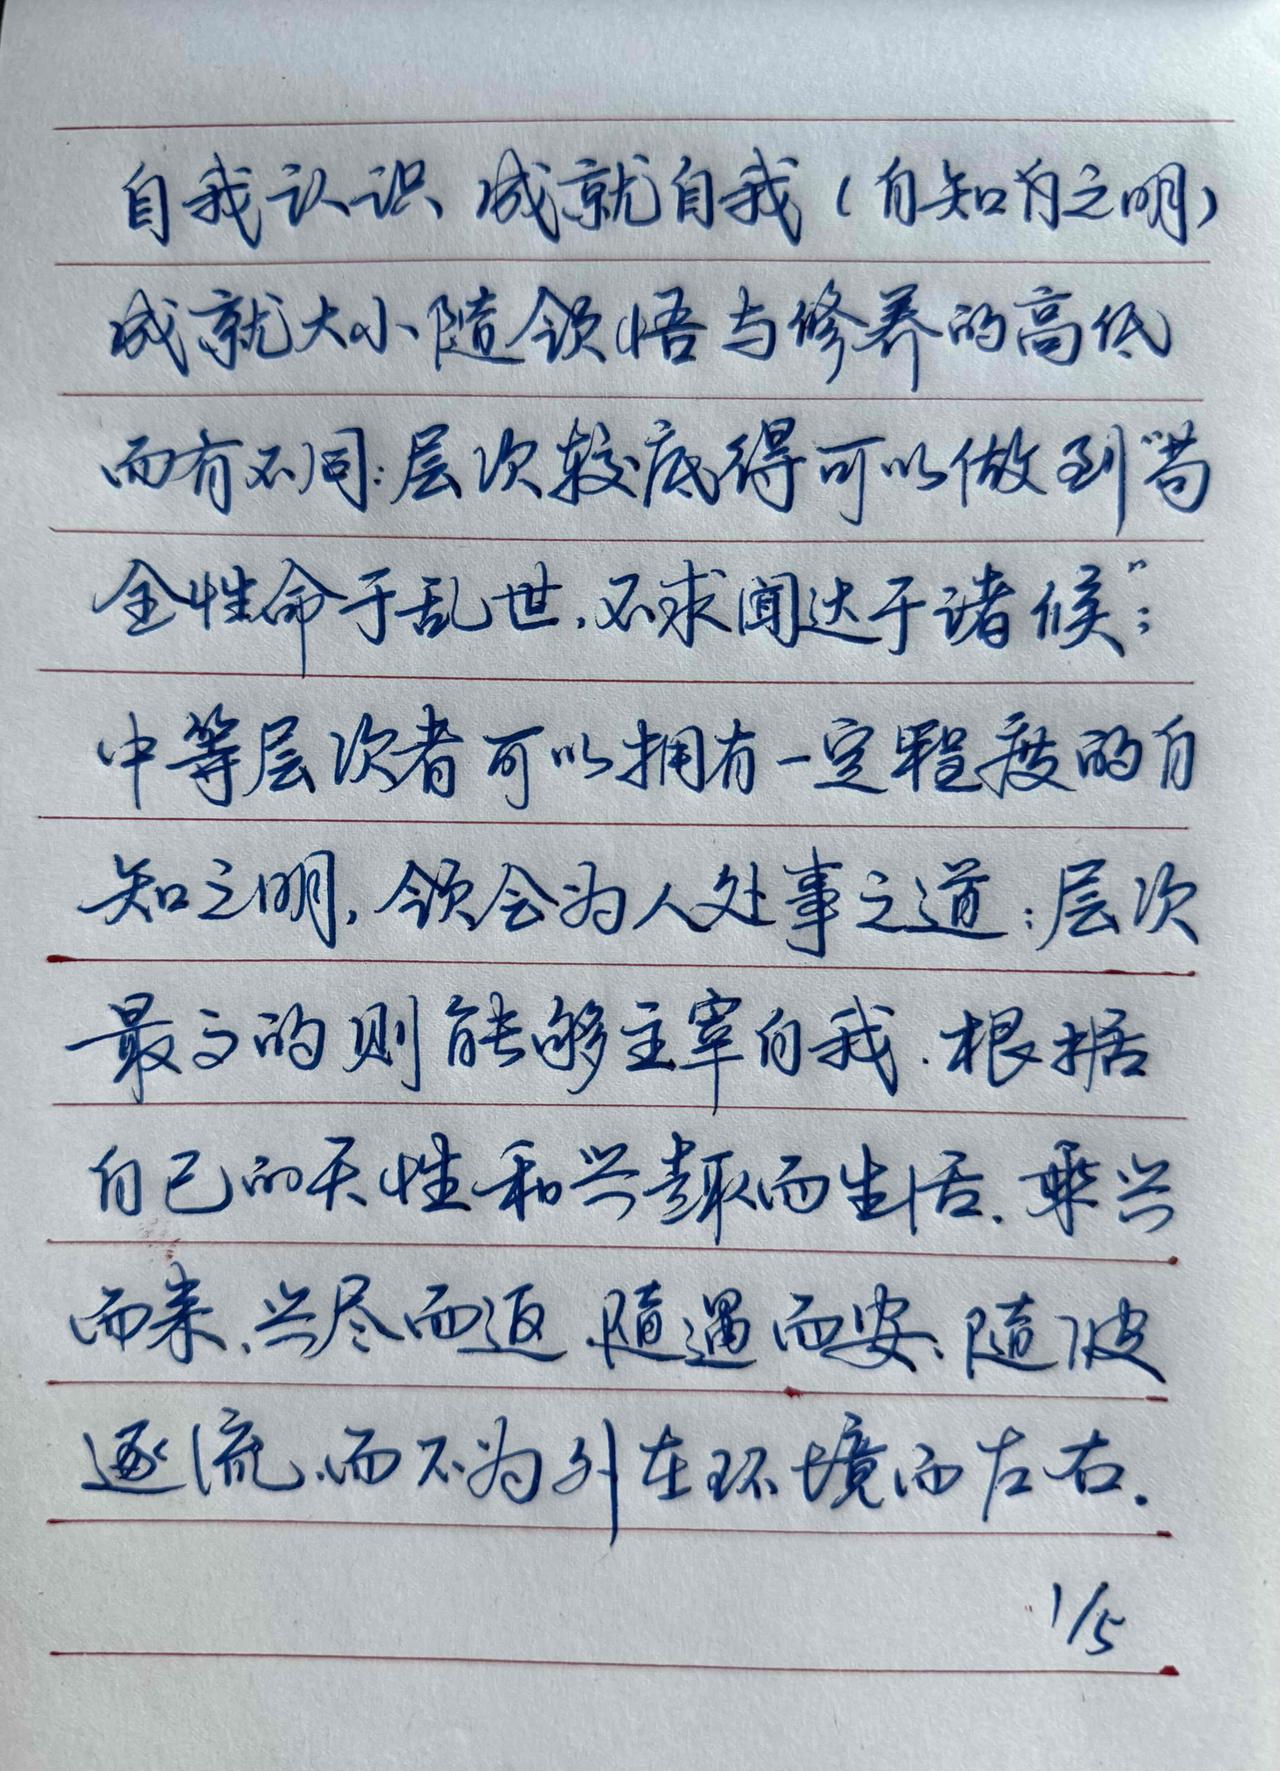 自我认识、成就自我（自知自之明）
成就大小随领悟与修养的高低
而有不同：层次较底得可以做到“苟
全性命于乱世，不求闻达于诸候”；
中等层次者可以拥有一定程度的自
知之明，领会为人处事之道；层次
最高的则能够主宰自我．根据
自己的天性和兴趣而生活．乘兴
而来、兴尽而返、随遇而安、随波
逐流、而不为外在环境而左右．
1/5